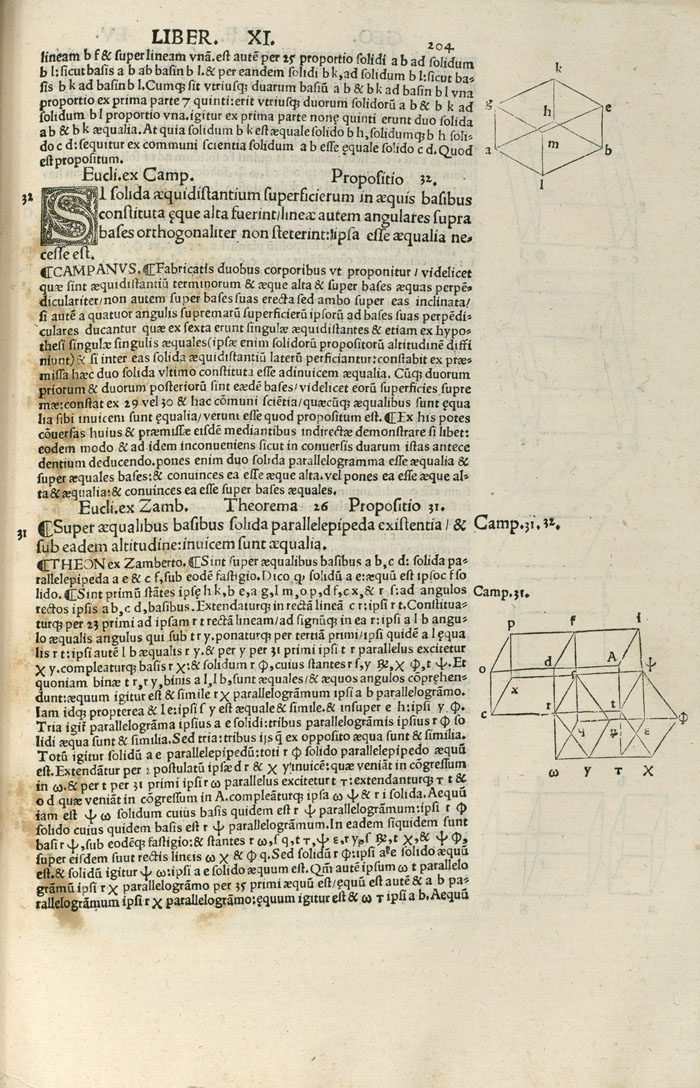 LIBER. XI. 204
lineam b f & super lineam vnã. est autẽ per 25 proportio solidi a b ad solidum
b l: sicut basis a b ab basin b l. & per eandem solidi b k, ad solidum b l: sicut ba-
sis b k ad basin b l. Cumq; sit vtriusq; duarum basiũ a b & b k ad basin b l vna
proportio ex prima parte 7 quinti: erit vtriusq; duorum solidorũ a b & b k ad
solidum b l proportio vna. igitur ex prima parte nonę quinti erunt duo solida
a b & b k æqualia. At quia solidum b k est æquale solido b h, solidumq; b h soli-
do c d: sequitur ex communi scientia solidum a b esse ęquale solido c d. Quod
est propositum.
Eucli. ex Camp. Propositio 32.
32 SI solida æquidistantium superficierum in æquis basibus
constituta ęque alta fuerint/lineæ autem angulares supra
bases orthogonaliter non steterint: ipsa esse æqualia ne-
cesse est.
¶CAMPANVS. ¶Fabricatis duobus corporibus vt proponitur / videlicet
quæ sint æquidistantiũ terminorum & æque alta & super bases æquas perpẽ-
diculariter/non autem super bases suas erecta sed ambo super eas inclinata/
si autẽ a quatuor angulis supremarũ superficierũ ipsorũ ad bases suas perpẽdi-
culares ducantur quæ ex sexta erunt singulæ æquidistantes & etiam ex hypo-
thesi singulæ singulis æquales (ipsæ enim solidorũ propositorũ altitudinẽ diffi
niunt) & si inter eas solida æquidistantiũ laterũ perficiantur: constabit ex præ-
missa hæc duo solida vltimo constituta esse adinuicem æqualia. Cũq; duorum
priorum & duorum posteriorũ sint eædẽ bases/videlicet eorũ superficies supre
mæ: constat ex 29 vel 30 & hac cõmuni sciẽtia/quæcũq; æqualibus sunt equa
lia sibi inuicem sunt ęqualia/verum esse quod propositum est. ¶Ex his potes
cõuersas huius & præmissæ eisdẽ mediantibus indirectæ demonstrare si libet:
eodem modo & ad idem inconueniens sicut in conuersis duarum istas antece
dentium deducendo. pones enim duo solida parallelogramma esse æqualia &
super æquales bases: & conuinces ea esse æque alta. vel pones ea esse æque al-
ta & æqualia: & conuinces ea esse super bases æquales.
Eucli. ex Zamb. Theorema 26 Propositio 31.
31 ¶Super æqualibus basibus solida parallelepipeda existentia / & Camp. 31. 32.
sub eadem altitudine: inuicem sunt æqualia.
¶THEON ex Zamberto. ¶Sint super æqualibus basibus a b, c d: solida pa-
rallelepipeda a e & c f, sub eodẽ fastigio. Dico q solidũ a e: æquũ est ipso c f so
lido. ¶Sint primũ stãtes ipsę h k, b e, a g, l m, o p, d f, c x, & r s: ad angulos Camp. 31.
rectos ipsis a b, c d, basibus. Extendaturq; in rectã lineã c r: ipsi r t. Constitua-
turq; per 23 primi ad ipsam r t rectã lineam/ad signũq; in ea r: ipsi a l b angu-
lo æqualis angulus qui sub t r y. ponaturq; per tertiã primi/ipsi quidẽ a l ęqua
lis r t: ipsi autẽ l b æqualis r y. & per y per 31 primi ipsi t r parallelus excitetur
χ y. compleaturq; basis r χ: & solidum r φ, cuius stantes r f, y, χ φ, t ψ. Et
quoniam binæ t r, r y, binis a l, l b, sunt æquales/& æquos angulos cõprehen-
dunt: æquum igitur est & simile r χ parallelogrãmum ipsi a b parallelogrãmo.
Iam idq; propterea & l e: ipsi f y est æquale & simile. & insuper e h: ipsi y φ.
Tria igiť parallelogrãma ipsius a e solidi: tribus parallelogrãmis ipsius r φ so
lidi æqua sunt & similia. Sed tria: tribus ijs q ex opposito æqua sunt & similia.
Totũ igitur solidũ a e parallelepipedũ: toti r φ solido parallelepipedo æquũ
est. Extendãtur per 2 postulatũ ipsæ d r & χ y inuicẽ: quæ veniãt in cõgressum
in ω. & per t per 31 primi ipsi r ω parallelus excitetur t τ: extendanturq; τ t &
o d quæ veniãt in cõgressum in A. compleãturq; ipsa ω ψ & r i solida. Aequũ
iam est ψ ω solidum cuius basis quidem est r ψ parallelogrãmum: ipsi r φ
solido cuius quidem basis est r ψ parallelogrãmum. In eadem siquidem sunt
basi r ψ, sub eodẽq; fastigio: & stantes r ω, s q, t τ, ψ ε, r y, s, t χ, & ψ φ,
super eisdem suut rectis lineis ω χ & φ q. Sed solidũ r φ: ipsi a e solido æquũ
est. & solidũ igitur ψ ω: ipsi a e solido æquum est. Qm̃ autẽ ipsum ω t parallelo
grãmũ ipsi r χ parallelogrãmo per 35 primi æquũ est/ęquũ est autẽ & a b pa-
rallelogrãmum ipsi r χ parallelogrãmo: ęquum igitur est & ω τ ipsi a b. Aequũ
k
g e
h
a m b
l
p f i
o d A ψ
x
c r t φ
q ε
ω y τ χ